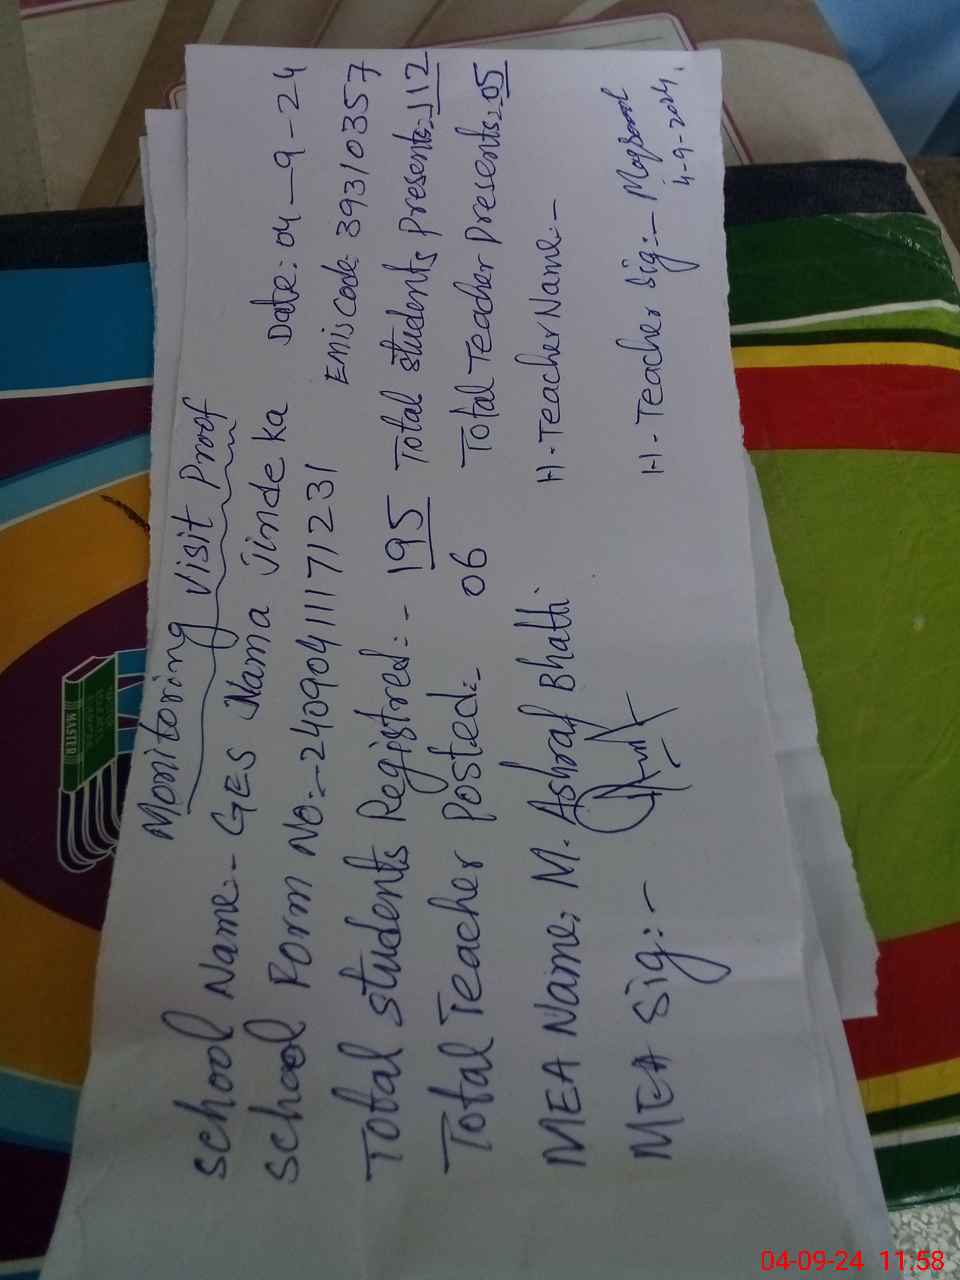 Monitoring Visit Proof
School Name:- GES Nama Jinde ka Date: 04-9-24
School Form No:- 24090411171231 Emis Code: 39310357
Total Students Registred:- 195 Total Students Presents:- 112
Total Teacher Posted:- 06 Total Teacher Presents:- 05
MEA Name: M. Ashraf Bhatti H-Teacher Name:-
MEA Sig:- H-Teacher Sig:- Maqsood
4-9-2024.
MASTER
04-09-24 11:58